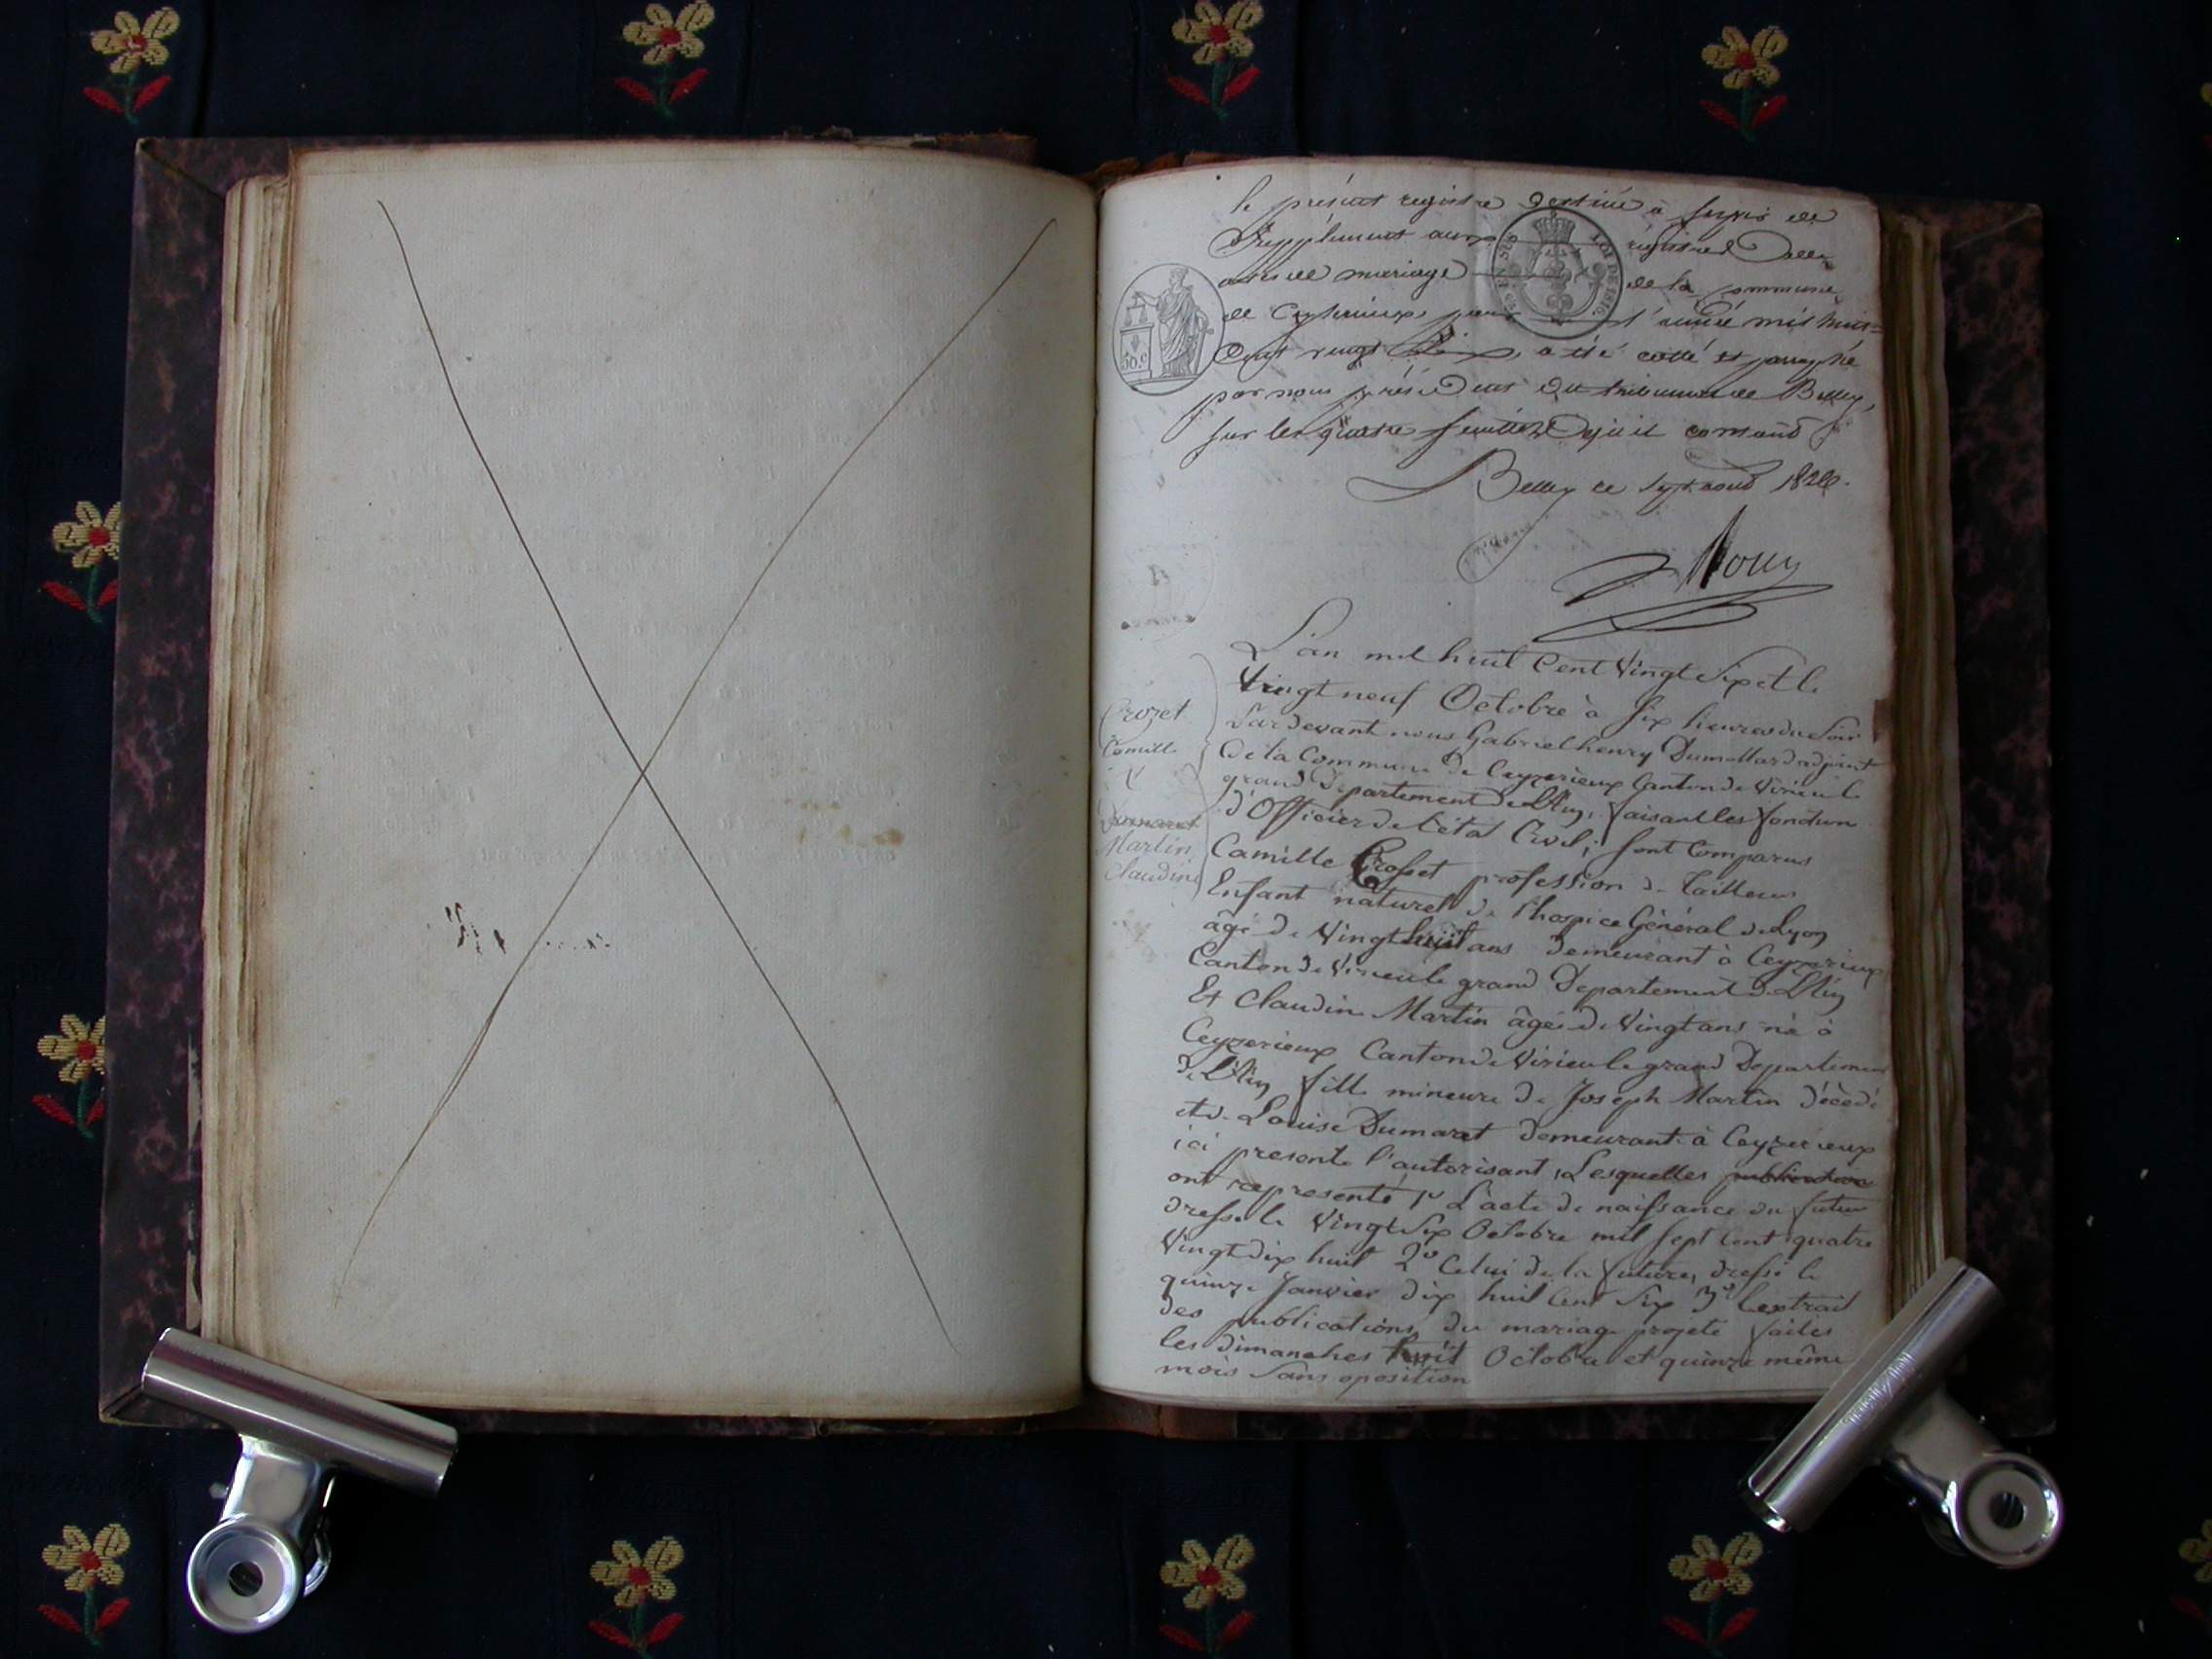 le présent registre destiné à servir de
Supplément aux registres des
actes de mariage de la commune
de Ceyzerieux pour l'année mil huit
Cent vingt Six, a été cotté et paraphé
par nous président du tribunal de Belley,
sur les quatre feuillets qu'il contient
Belley ce sept aoust 1826.
EN SUS
LOI DE 1816.
50.c
L'an mil huit Cent Vingt Six et le
Vingt neuf Octobre à Six heures du Soir
Pardevant nous Gabriel henry Dumollard adjoint
De la Commune De Ceyzerieux Canton de Virieu le
grand Departement de L'Ain, faisant les fonction
d'Officier de l'état Civil; sont Comparus
Camille Crosset profession de Tailleur
Enfant naturel de l'hospice Général de Lyon
âgé De Vingt huit ans demeurant à Ceyzerieux
Canton de Virieu le grand Departement De L'Ain
Et Claudine Martin âgée De Vingt ans né à
Ceyzerieux Canton de Virieu le grand Departement
de L'Ain fille mineure de Joseph Martin décédé
et de Louise Dumaret demeurant à Ceyzerieux
ici presente l'autorisant, Lesquelles publication
ont représenté 1º L'acte de naissance du futur
dressé le Vingt Six Octobre mil sept Cent quatre
Vingt dix huit 2º Celui de la future, dressé le
quinze Janvier dix huit Cent Six 3º L'extrait
des publications du mariage projeté faites
les dimanches huit Octobre et quinze même
mois Sans oposition
Crozet
Camille
&
Dumaret
Martin
Claudine